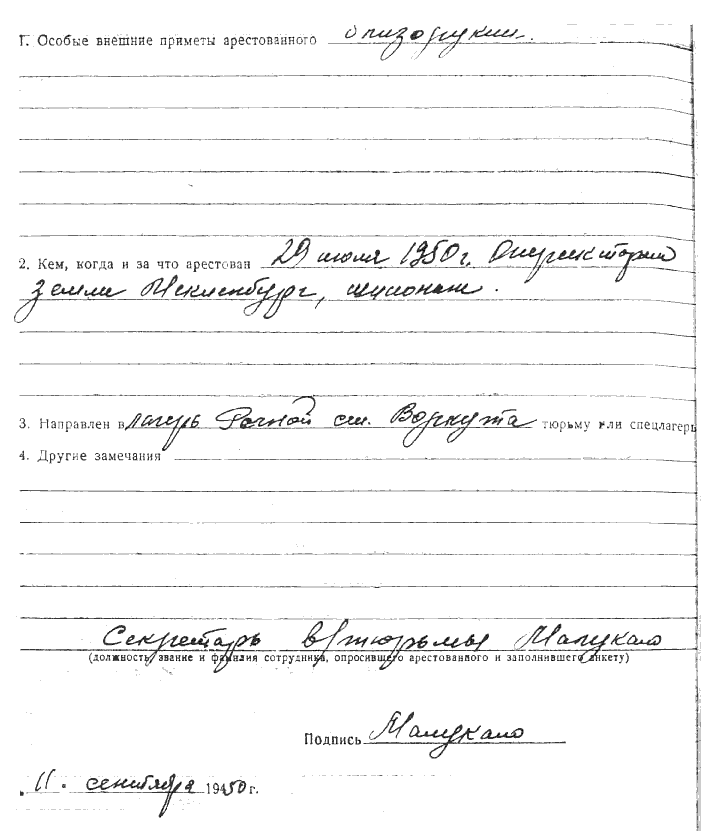 1. Особые внешние приметы арестованного близорукий.
2. Кем, когда и за что арестован 29 июля 1950 г. Оперсектором
земли Мекленбург, шпионаж.
3. Направлен в лагерь Речной ст. Воркута тюрьму или спецлагерь
4. Другие замечания
Секретарь в/тюрьмы
(должность, звание и фамилия сотрудника, опросившего арестованного и заполнившего анкету)
Подпись
11. сентября 1950 г.